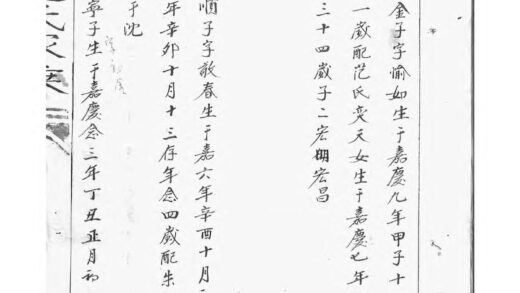 金子字愉如生于嘉慶九年甲子十
一歲配范氏奕天女生于嘉慶七年
三十四歲子二宏明宏昌
順子字啟春生于嘉六年辛酉十月
年辛卯十月十三存年念四歲配朱
于沈
寧子生于嘉慶念三年丁丑正月初
氏家乘